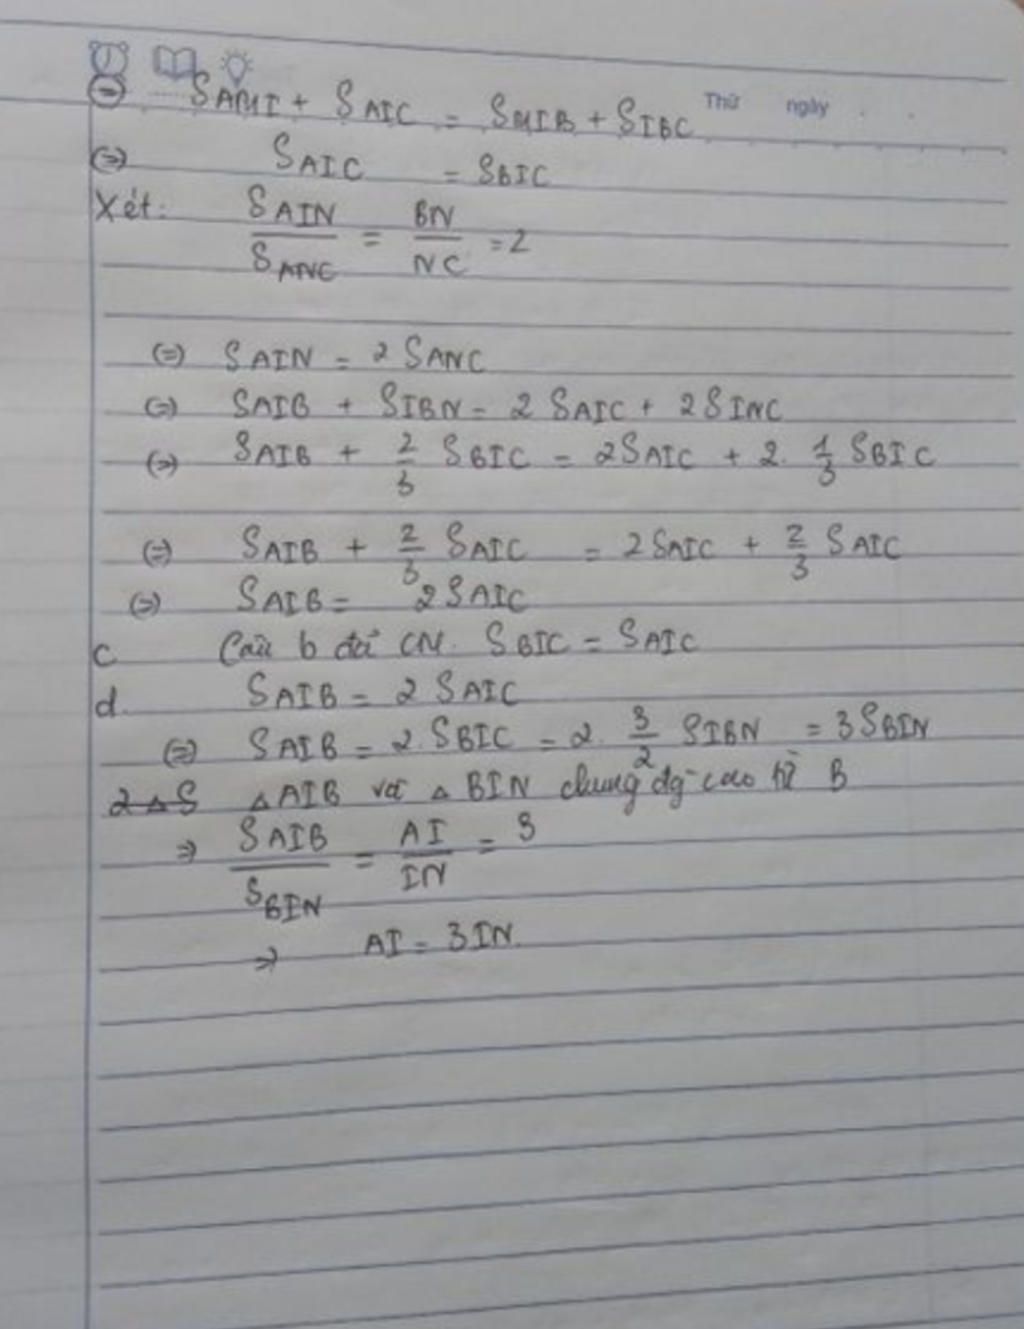 (=) SAMI + SAIC = SMIB + SIBC Thứ ngày
(=) SAIC = SBIC
Xét: SAIN / SANC = BN / NC = 2
(=) SAIN = 2 SANC
(=) SAIB + SIBN = 2 SAIC + 2SINC
(=) SAIB + 2/3 SBIC = 2SAIC + 2. 1/3 SBIC
(=) SAIB + 2/3 SAIC = 2SAIC + 2/3 SAIC
(=) SAIB = 2SAIC
c Câu b đã CM. SBIC = SAIC
d. SAIB = 2 SAIC
(=) SAIB = 2. SBIC = 2. 3/2 SIBN = 3SBIN
2 △ S △AIB và △ BIN chung đg cao từ B
=> SAIB / SBIN = AI / IN = 3
=> AI = 3IN.